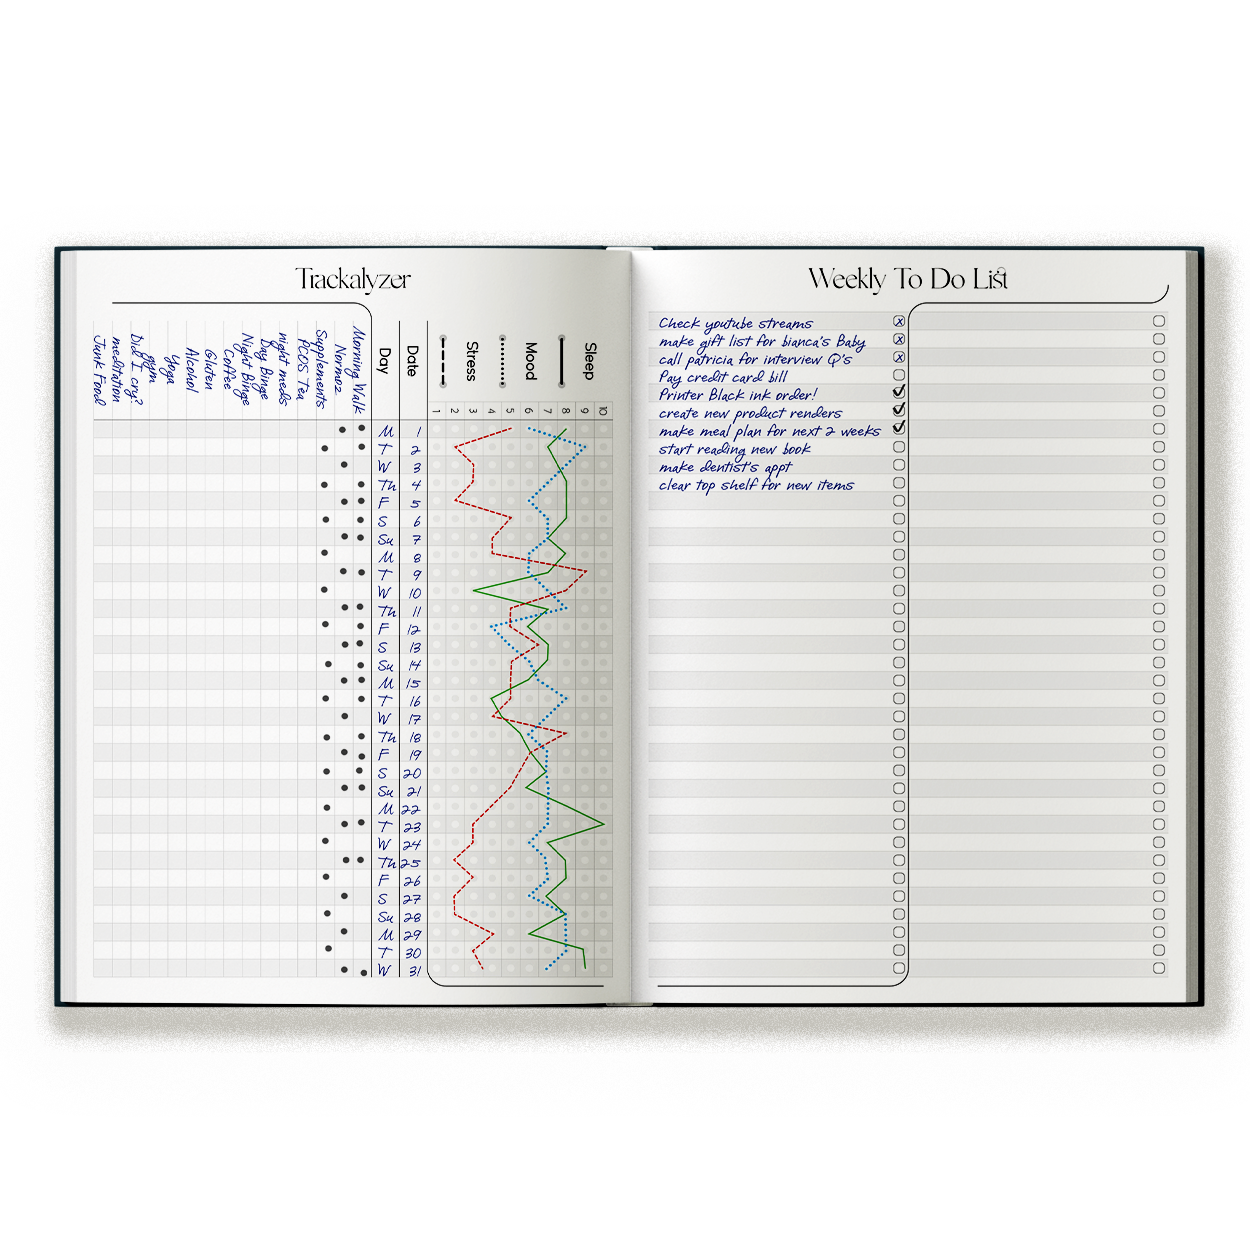 Trackalyzer
Morning Walk
Normoz
Supplements
PCOS Tea
night meds
Day Binge
Night Binge
Coffee
Gluten
Alcohol
Yoga
gym
Did I cry?
meditation
Junk Food
Day
Date
Stress
Mood
Sleep
1 2 3 4 5 6 7 8 9 10
M 1
T 2
W 3
Th 4
F 5
S 6
Su 7
M 8
T 9
W 10
Th 11
F 12
S 13
Su 14
M 15
T 16
W 17
Th 18
F 19
S 20
Su 21
M 22
T 23
W 24
Th 25
F 26
S 27
Su 28
M 29
T 30
W 31
Weekly To Do List
Check youtube streams x
make gift list for bianca's Baby x
call patricia for interview Q's x
Pay credit card bill
Printer Black ink order!
create new product renders
make meal plan for next 2 weeks
start reading new book
make dentist's appt
clear top shelf for new items